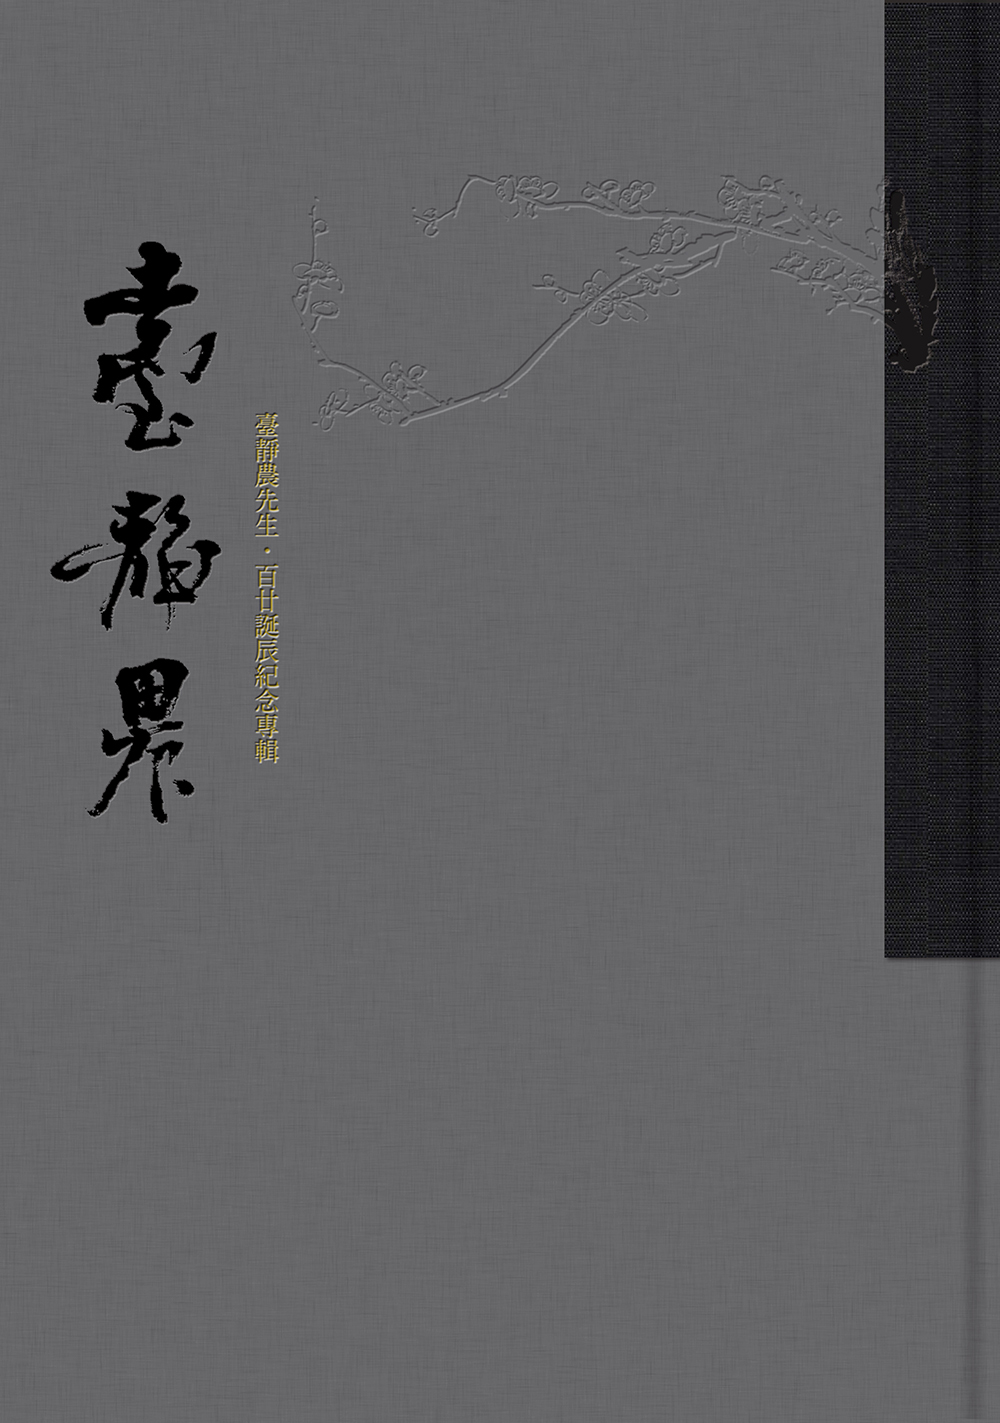 臺靜農
臺靜農先生・百廿誕辰紀念專輯